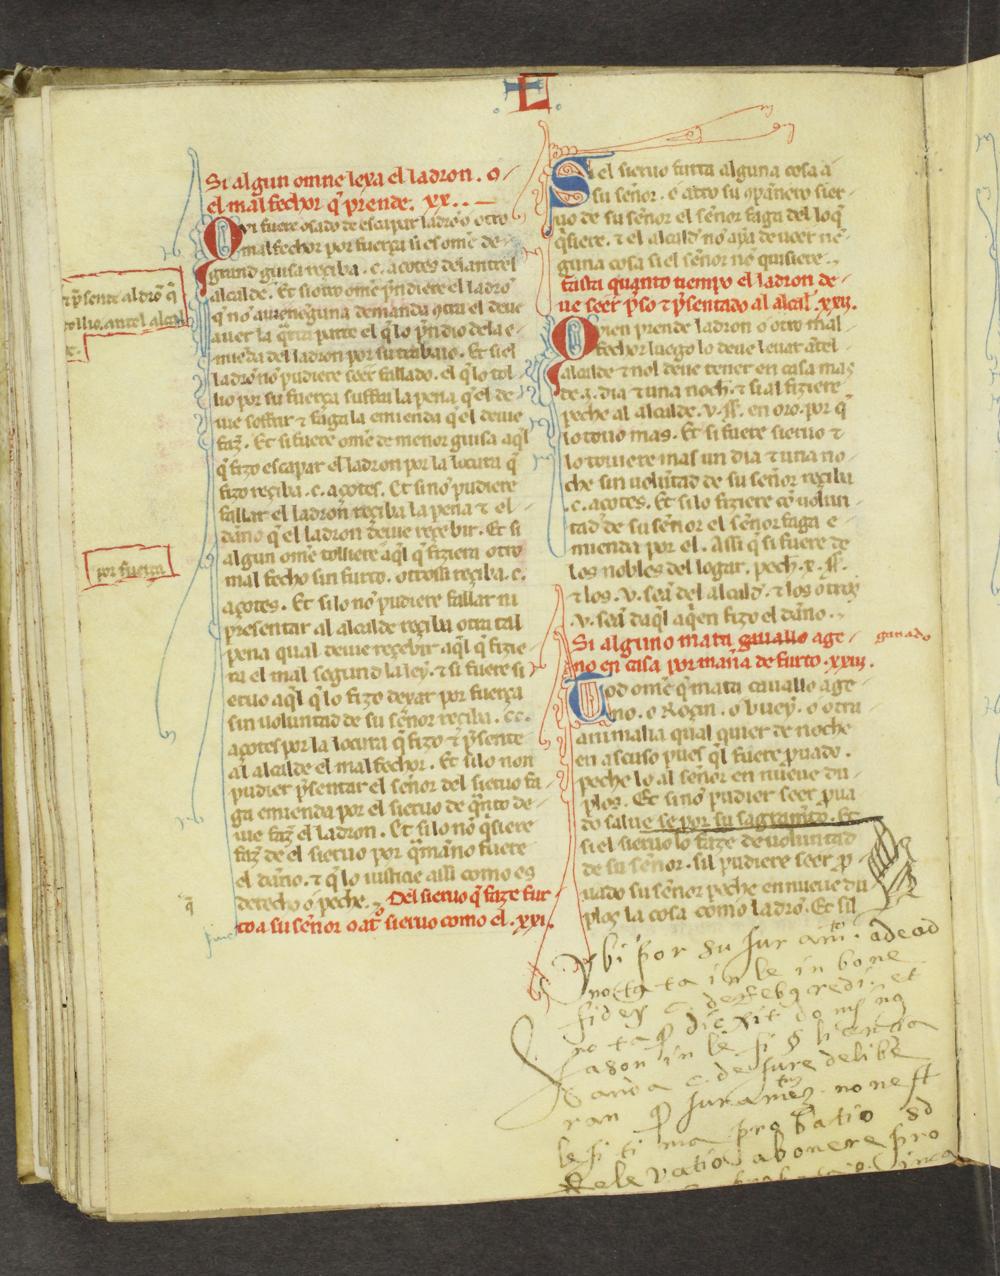 L
Si algun omne lexa el ladron. o
el mal fechor q̃ prende. xx.
Qui fuere osado de escapar ladrõ o otro
malfechor por fuerça si es ome de
grand guisa reçiba .c. açotes delantrel
alcalde. Et si otro ome p̃ndiere el ladrõ
q̃ nõ aui neguna demanda 9tra el deue
auer la q̃rta parte el q̃ lo p̃ndio dela e
mieda del ladron por su trabaio. Et si el
ladrõ nõ pudiere seer fallado. el q̃ lo tol
lio por su fuerça suffra la pena q̃ el de
ue soffrir & faga la emienda q̃ el deue
faz̃. Et si fuere ome de menor guisa aq̃l
q̃ fizo escapar el ladron por la locura q̃
fizo reçiba .c. açotes. Et sinõ pudiere
fallar el ladron reçiba la pena & el
daño q̃ el ladron deue reçebir. Et si
algun ome tolliere aq̃l q̃ fiziera otro
mal fecho sin furto. otrossi reçiba .c.
açotes. Et si lo nõ pudiere fallar ni
presentar al alcalde reçiba otra tal
pena qual deue reçebir aq̃l q̃ fizie
ra el mal segund la ley. & si fuere si
eruo aq̃l q̃ lo fizo dexar por fuerça
sin voluntad de su señor reçiba .cc.
açotes por la locura q̃ fizo & p̃sente
al alcalde el malfechor. Et si lo non
pudier p̃sentar el señor del sieruo fa
ga emienda por el sieruo de q̃nto de
ue faz̃ el ladron. Et si lo nõ q̃siere
faz̃ de el sieruo por q̃ mano fuere
el daño. & q̃ lo iusticie assi como es
derecho o peche. Del sieruo q̃ faze fur
to a su señor o a ot̃ sieruo como el .xxi.
& p̃sente al ladrõ q̃
tollio. antel alcal
por fuerça
q̃
Si el sieruo furta alguna cosa a
su señor. o a otro su 9pañero sier
uo de su señor el señor faga del lo q̃
q̃siere. & el alcald̃ nõ aya de ueer ne
guna cosa si el señor nõ quisiere.
fasta quanto tiempo el ladron de
ue seer p̃so & p̃sentado al alcal. xxii.
Quien prende ladron o otro mal
fechor luego lo deue leuar ãtel
alcalde & nol deue tener en casa mas
de .i. dia & una noch̃. & si al fiziere
peche al alcalde .v. ss̃. en oro. por q̃
lo touo mas. Et si fuere sieruo &
lo touiere mas un dia & una no
che sin voluntad de su señor reçiba
.c. açotes. Et si lo fiziere cõ volun
tad de su señor el señor faga e
mienda por el. Assi q̃ si fuere de
los nobles del logar. pech̃ .x. ss̃.
& los .v. seã del alcald̃. & los otros
.v. seã daq̃l aq̃en fizo el daño.
Si alguno mata cauallo age
ganado
no en casa por maña de furto .xxiii.
Tod ome q̃ mata cauallo age
no. o Roçin. o buey. o otra
animalia qual quier de noche
en ascuso pues q̃l fuere p̃uado.
peche lo al señor en nueue du
plos. Et sinõ pudier seer p̃ua
do salue se por su sagramẽto. Et
si el sieruo lo faze de voluntad
de su señor. sil pudiere seer p̃
uado su señor peche en nueue du
plos la cosa como ladrõ. Et sil
Vbi por su juram̃to. adeod
nota ta in le in bone
fidey c de rebq̃ credi. et
no ta q̃ dicxit domj nq
Jason in le si q̃ licencia
anda c. de jure delibe
ran q̃ juramẽtũ non est
le si ti ma probatio sd
Releuatio ab onere pro